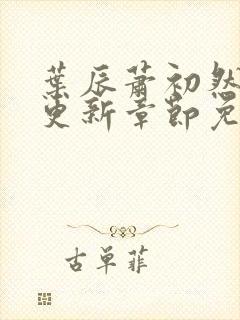 葉辰蕭初然
更新章節免
古單菲